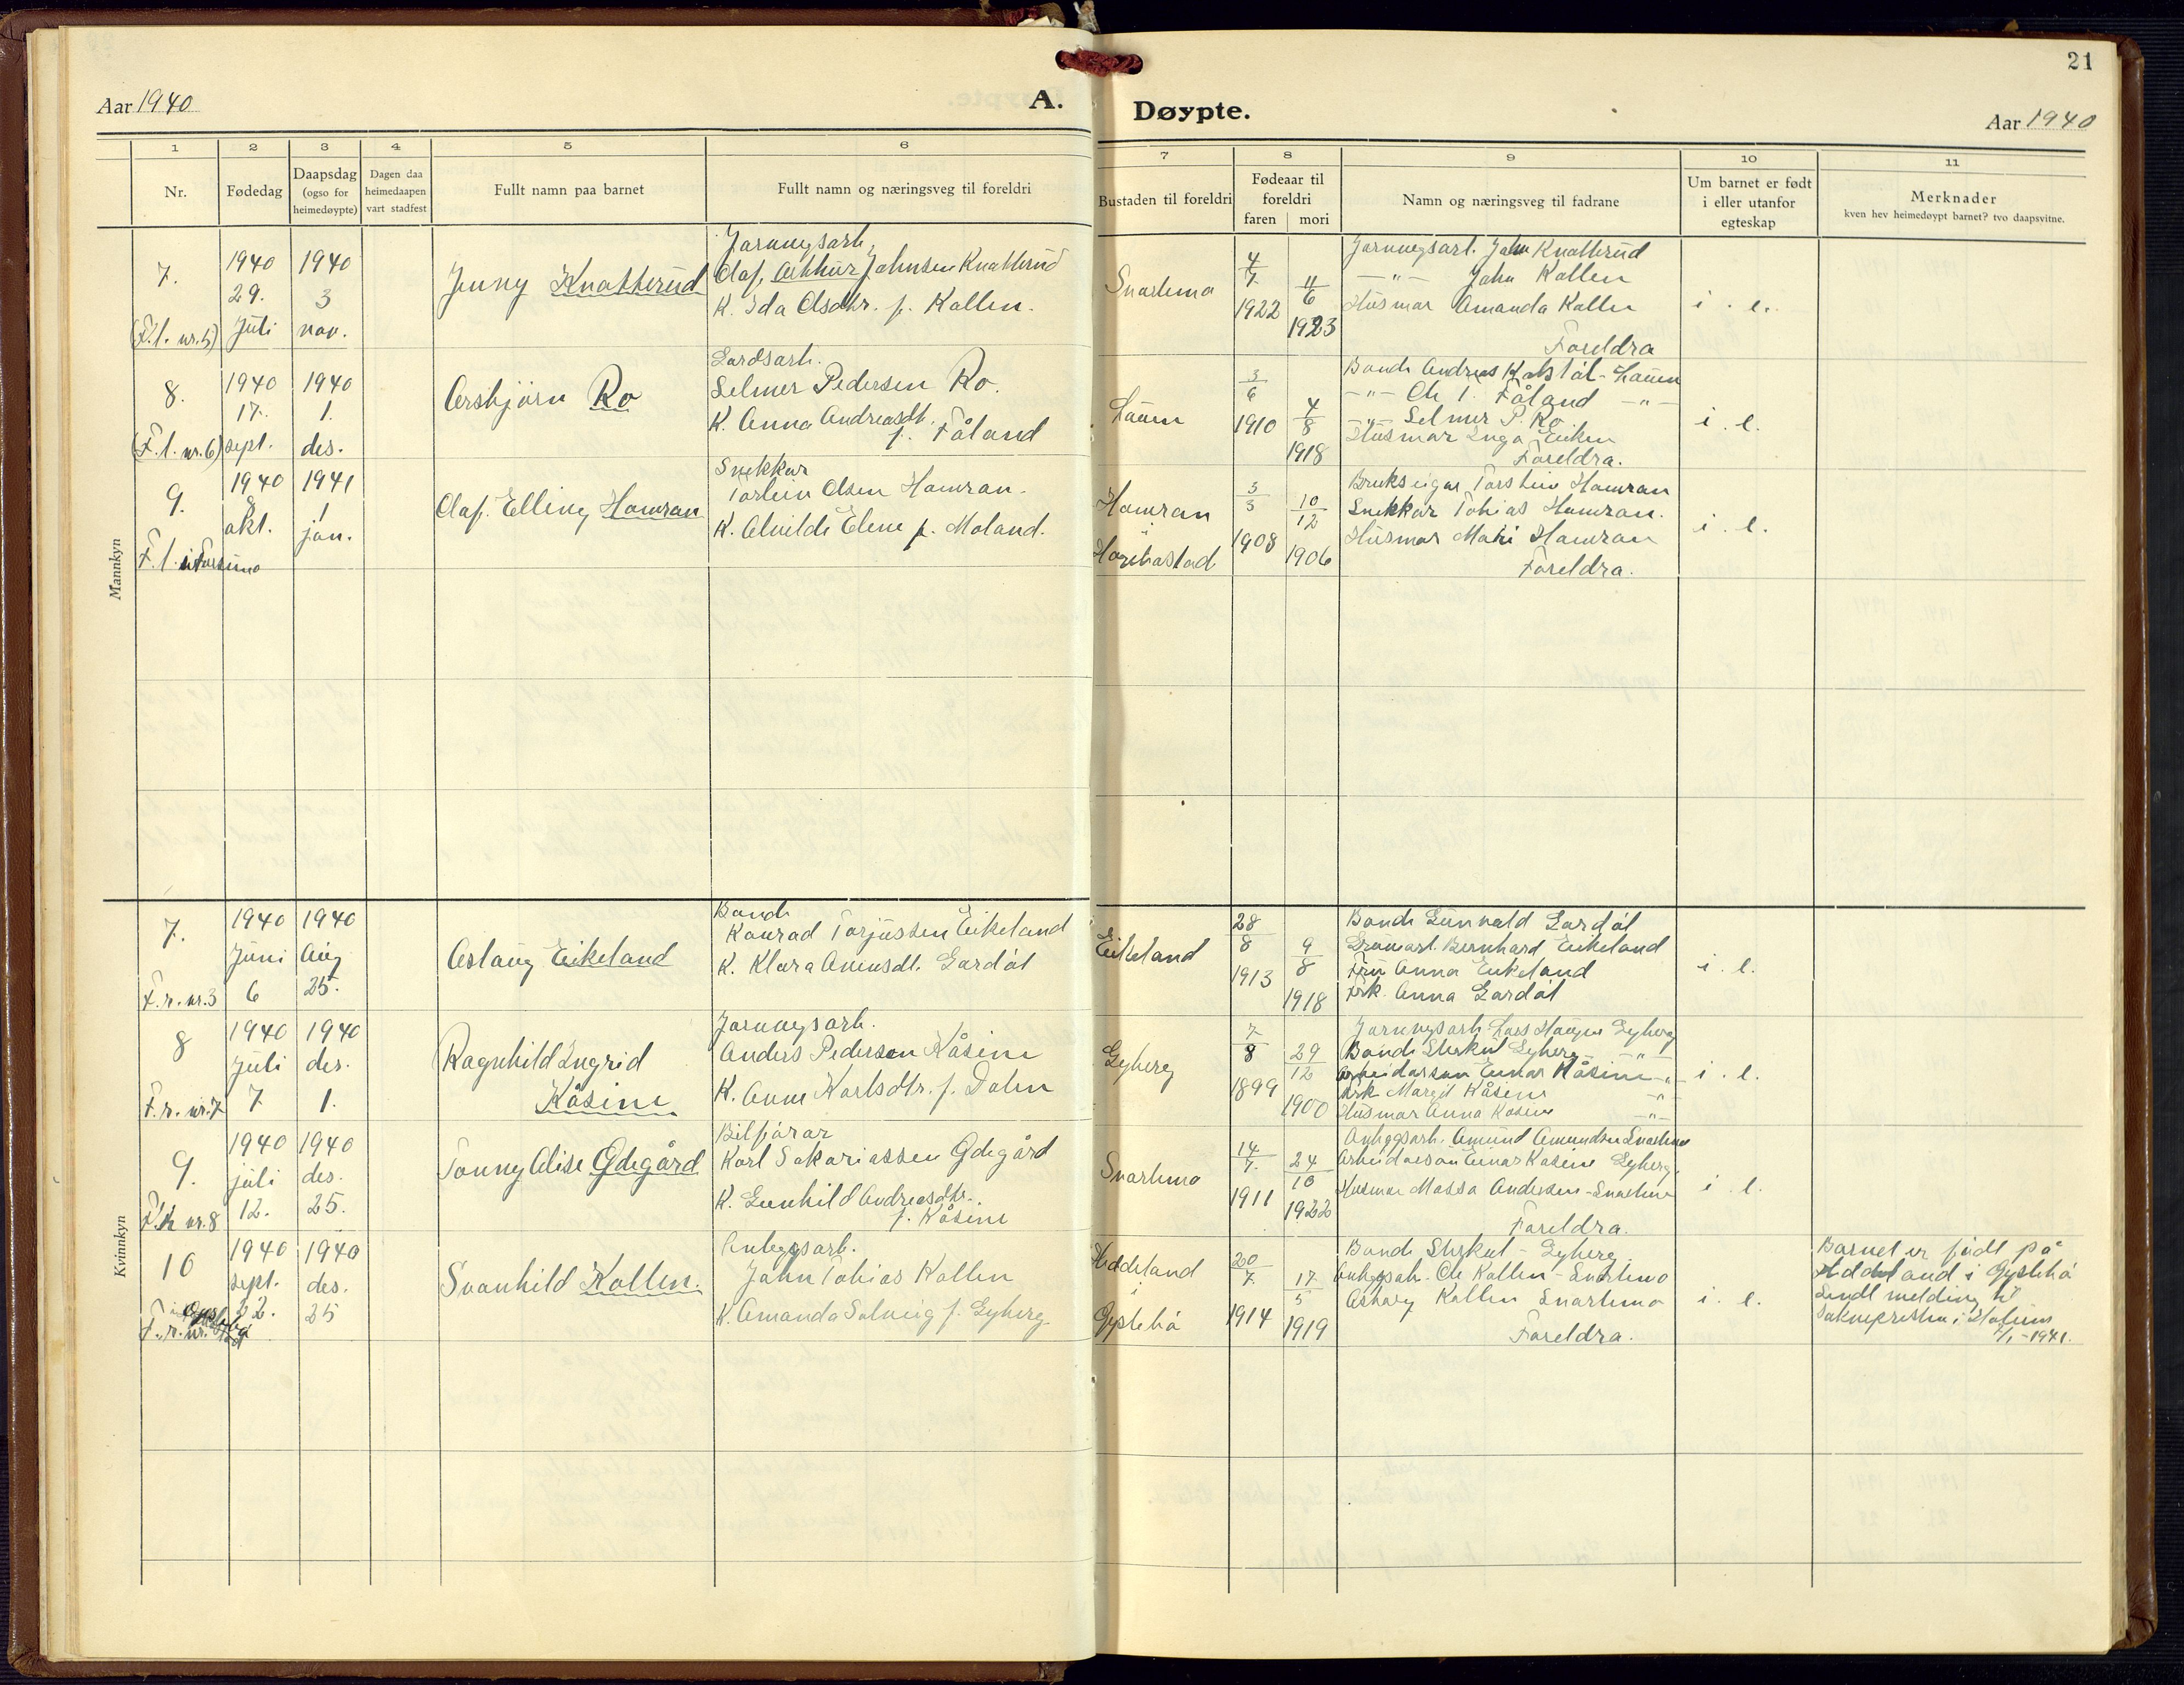 21
Aar 1940
A. Døypte.
Aar 1940
1 2 3 4 5 6 7 8 9 10 11
Nr.
Fødedag
Daapsdag
(ogso for
heimedøypte)
Dagen daa
heimedaapen
vart stadfest
Fullt namn paa barnet
Fullt namn og næringsveg til foreldri
Bustaden til foreldri
Fødeaar til
foreldri
faren mori
Namn og næringsveg til fadrane
Um barnet er født
i eller utanfor
egteskap
Merknader
kven hev heimedøypt barnet? tvo daapsvitne.
Mannkyn
7.
(F.l. nr.5)
1940
29.
juli
1940
3
nov.
Jenny Knatterud
Jarnvegsarb.
Olaf, Arthur Johnsen Knatterud
K. Ida Olsdtr. f. Kollen.
Snartemo
4/7
1922
11/6
1923
Jarnvegsarb. John Knatterud
—"— John Kollen
Husmor Amanda Kollen
Foreldra
i. e.
8.
(F.l. nr.6)
1940
17.
sept.
1940
1.
des.
Asbjørn Ro
Gardsarb.
Selmer Pedersen Ro.
K. Anna Andreasdt.
f. Fåland
Lauen
3/6
1910
4/8
1918
Bonde Andreas Kalstøl - Lauen
—"— Ole T. Fåland —"—
—"— Selmer P. Ro
Husmor Inga Eiken
Foreldra.
i. e.
9.
F.l.
1940
8
okt.
1941
1
jan.
Olaf Elling Homran
Snekkar
Torleiv Olsen Homran.
K. Alvilde Elene f. Moland.
Homran
i
Hægebostad
3/3
1908
10/12
1906
Brukseigar Torstein Homran
Snekkar Tobias Homran.
Husmor Mari Homran
Foreldra.
i. e.
Kvinnkyn
7.
F.r. nr.3
1940
Juni
6
1940
Aug
25.
Aslaug Eikeland
Bonde
Konrad Torjussen Eikeland
K. Klara Anensdt. Gardøl
Eikeland
28/8
1913
9/8
1918
Bonde Gunvald Gardøl
Bernhard Eikeland
Fru Anna Eikeland
Frk. Anna Gardøl
i. e.
8
F.r. nr.7
1940
Juli
7
1940
des.
1.
Ragnhild Ingrid
Kåsene
Jarnvegsarb.
Anders Pedersen Kåsene
K. Anne Karlsdtr. f. Dahn
Gyberg
7/8
1899
29/12
1900
Jarnvegsarb. Lars Haugen Gyberg
Bonde Sterkul Gyberg —"—
Arbeidarson Einar Kåsene —"—
Frk Margit Kåsene —"—
Husmor Anna Kåsene —"—
i. e.
9.
F.k nr.8
1940
juli
12.
1940
des.
25.
Tonny Alise Ødegård
Bilførar
Karl Sakariassen Ødegård
K. Gunhild Andreasdtr.
f. Kåsene
Snartemo
14/7
1911
24/10
1922
Anleggsarb. Amund Amundsen Snartemo
Arbeidarson Einar Kåsene Gyberg.
Husmor Massa Andersen - Snartemo
Foreldra.
i. e.
10
F.r. nr.
1940
sept.
22.
1940
des.
25
Svanhild Kollen.
Anleggsarb.
John Tobias Kollen
K. Amanda Solveig f. Gyberg
Heddeland
i
Øyslebø
20/7
1914
17/5
1919
Bonde Sterkul - Gyberg
Anleggsarb. Ole Kollen - Snartemo
Asborg Kollen Snartemo
Foreldra.
i. e.
Barnet er født på
Heddeland i Øyslebø
Sendt melding til
soknepresten i Holum
1/1 - 1941.